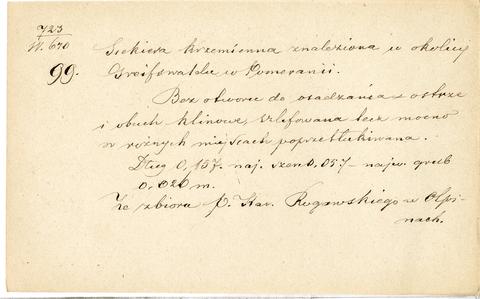 723
W. 670
99.
Siekiera krzemienna znaleziona w okolicy
Greifswaldu w Pomeranii.
Bez otworu do osadzania ostrze
i obuch klinowe, szlifowana lecz mocno
w różnych miejscach poprzetłukiwana.
Dług 0,157. naj. szer. 0.057 – najw. grub
0.026 m.
Ze zbioru p. Kar. Rogawskiego w Ołpi-
nach.